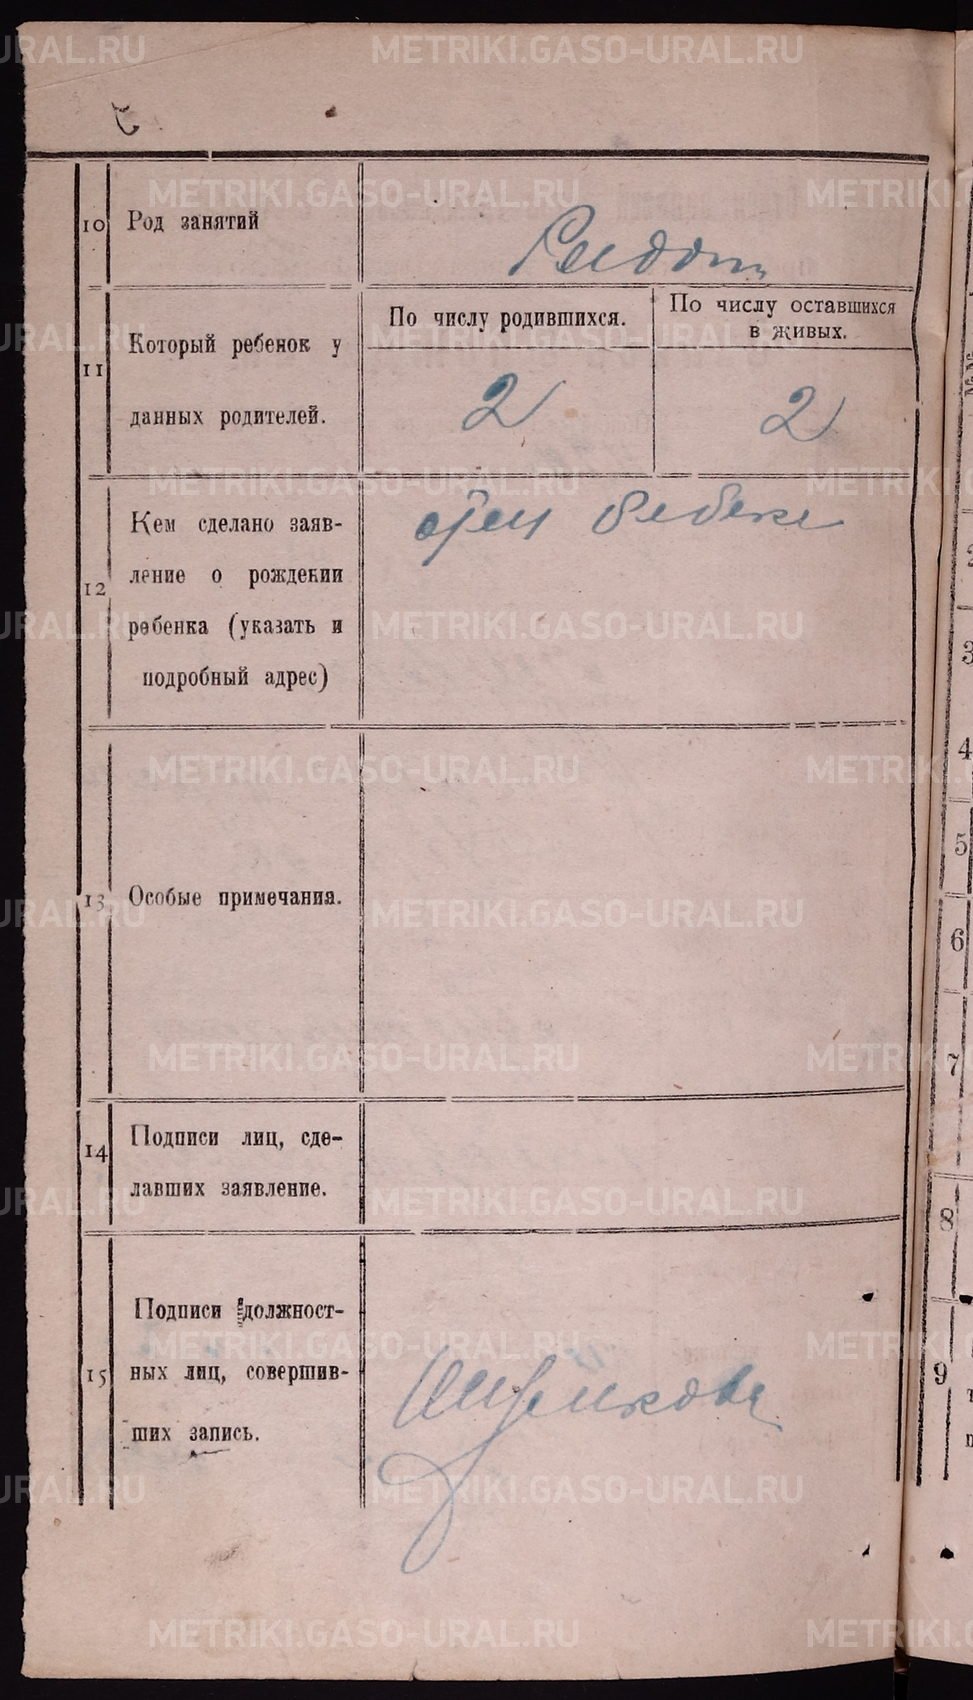 10 Род занятий
11 Который ребенок у
данных родителей.
По числу родившихся.
По числу оставшихся
в живых.
2
2
12 Кем сделано заяв-
ление о рождении
ребенка (указать и
подробный адрес)
отец ребенка
13 Особые примечания.
14 Подписи лиц, сде-
лавших заявление.
15 Подписи должност-
ных лиц, совершив-
ших запись.
3
4
5
6
7
8
9
METRIKI.GASO-URAL.RU